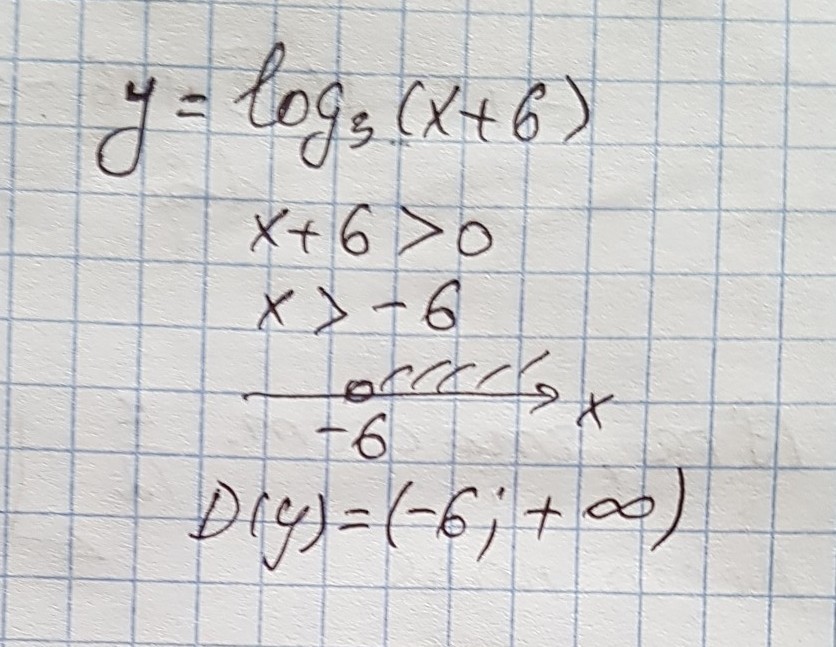 y = log₃(x+6)
x+6 > 0
x > -6
x
-6
D(y) = (-6; +∞)